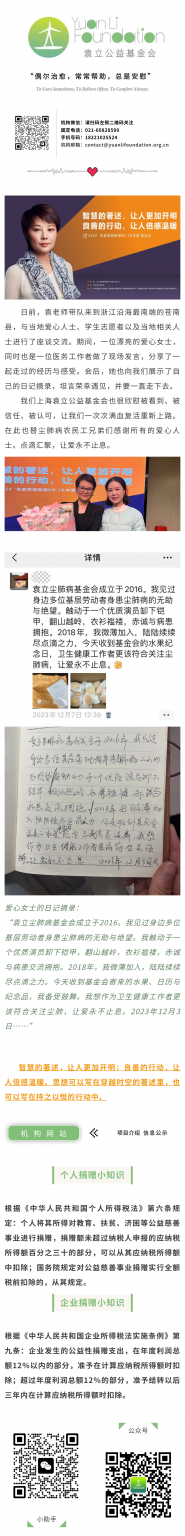 Yuan Li
Foundation
袁立公益基金会
“偶尔治愈，常常帮助，总是安慰”
To Cure Sometimes, To Relieve Often, To Comfort Always.
机构微信：请扫码左侧二维码关注
固定电话：021-60828590
手机号码：18221025524
机构邮箱：contact@yuanlifoundation.org.cn
智慧的著述，让人更加开明
良善的行动，让人倍感温暖
日前，袁老师带队来到浙江沿海最南端的苍南
县，与当地爱心人士、学生志愿者以及当地相关人
士进行了座谈交流。期间，一位漂亮的爱心女士，
同时也是一位医务工作者做了现场发言，分享了一
起走过的经历与感受。会后，她也向我们展示了自
己的日记摘录，坦言荣幸遇见，并要一直走下去。
我们上海袁立公益基金会也很欣慰被看到、被
信任、被认可，让我们一次次满血复活重新上路。
在此也替尘肺病农民工兄弟们感谢所有的爱心人
士。点滴汇聚，让爱永不止息。
详情
袁立尘肺病基金会成立于2016。我见过
身边多位基层劳动者身患尘肺病的无助
与绝望。触动于一个优质演员卸下铠
甲，翻山越岭，衣衫褴褛，赤诚与病患
拥抱。2018年，我微薄加入，陆陆续续
尽点滴之力，今天收到基金会的水果纪
念日，卫生健康工作者更该符合关注尘
肺病，让爱永不止息。
2023年12月7日 12:39
爱心女士的日记摘录：
“袁立尘肺病基金会成立于2016。我见过身边多位
基层劳动者身患尘肺病的无助与绝望。我触动于一
个优质演员卸下铠甲，翻山越岭，衣衫褴褛，赤诚
与病患交流拥抱。2018年，我微薄加入，陆陆续续
尽点滴之力。今天收到基金会寄来的水果、日历与
纪念品，我备受鼓舞。我想作为卫生健康工作者更
该符合关注尘肺，让爱永不止息。2023年12月3
日……”
智慧的著述，让人更加开明；良善的行动，让
人倍感温暖。思想可以写在穿越时空的著述里，也
可以写在持之以恒的行动中。
机构网站
项目介绍 信息公示
个人捐赠小知识
根据《中华人民共和国个人所得税法》第六条规
定：个人将其所得对教育、扶贫、济困等公益慈善
事业进行捐赠，捐赠额未超过纳税人申报的应纳税
所得额百分之三十的部分，可以从其应纳税所得额
中扣除；国务院规定对公益慈善事业捐赠实行全额
税前扣除的，从其规定。
企业捐赠小知识
根据《中华人民共和国企业所得税法实施条例》第
九条：企业发生的公益性捐赠支出，在年度利润总
额12%以内的部分，准予在计算应纳税所得额时扣
除；超过年度利润总额12%的部分，准予结转以后
三年内在计算应纳税所得额时扣除。
公众号
小助手